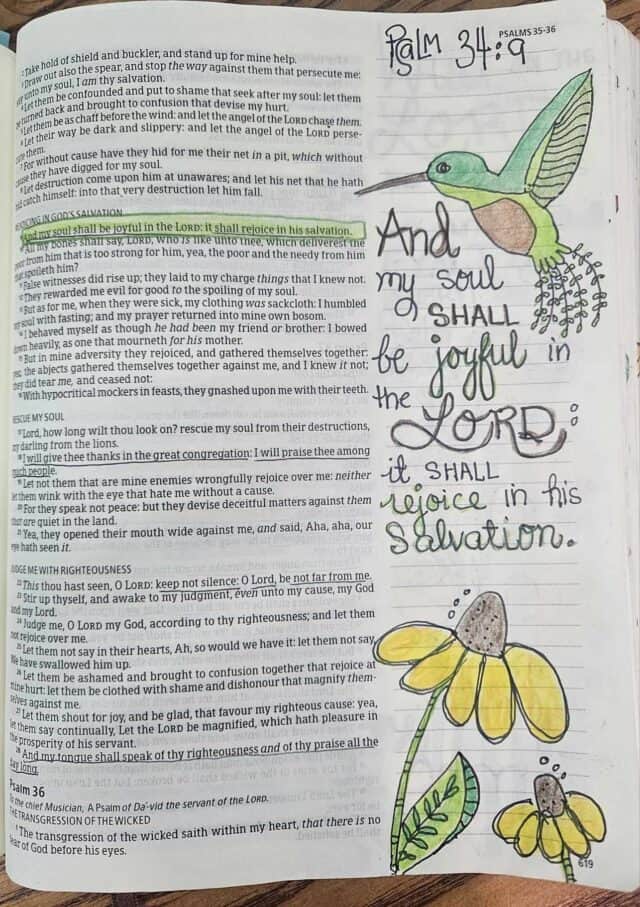 PSALMS 35-36
² Take hold of shield and buckler, and stand up for mine help.
³ Draw out also the spear, and stop the way against them that persecute me:
say unto my soul, I am thy salvation.
⁴ Let them be confounded and put to shame that seek after my soul: let them
be turned back and brought to confusion that devise my hurt.
⁵ Let them be as chaff before the wind: and let the angel of the LORD chase them.
⁶ Let their way be dark and slippery: and let the angel of the LORD perse-
cute them.
⁷ For without cause have they hid for me their net in a pit, which without
cause they have digged for my soul.
⁸ Let destruction come upon him at unawares; and let his net that he hath
hid catch himself: into that very destruction let him fall.
REJOICING IN GOD'S SALVATION
And my soul shall be joyful in the LORD: it shall rejoice in his salvation.
All my bones shall say, LORD, who is like unto thee, which deliverest the
poor from him that is too strong for him, yea, the poor and the needy from him
that spoileth him?
¹¹ False witnesses did rise up; they laid to my charge things that I knew not.
¹² They rewarded me evil for good to the spoiling of my soul.
¹³ But as for me, when they were sick, my clothing was sackcloth: I humbled
my soul with fasting; and my prayer returned into mine own bosom.
¹⁴ I behaved myself as though he had been my friend or brother: I bowed
down heavily, as one that mourneth for his mother.
¹⁵ But in mine adversity they rejoiced, and gathered themselves together:
yea, the abjects gathered themselves together against me, and I knew it not;
they did tear me, and ceased not:
¹⁶ With hypocritical mockers in feasts, they gnashed upon me with their teeth.
RESCUE MY SOUL
¹⁷ Lord, how long wilt thou look on? rescue my soul from their destructions,
my darling from the lions.
¹⁸ I will give thee thanks in the great congregation: I will praise thee among
much people.
¹⁹ Let not them that are mine enemies wrongfully rejoice over me: neither
let them wink with the eye that hate me without a cause.
²⁰ For they speak not peace: but they devise deceitful matters against them
that are quiet in the land.
²¹ Yea, they opened their mouth wide against me, and said, Aha, aha, our
eye hath seen it.
JUDGE ME WITH RIGHTEOUSNESS
²² This thou hast seen, O LORD: keep not silence: O Lord, be not far from me.
²³ Stir up thyself, and awake to my judgment, even unto my cause, my God
and my Lord.
²⁴ Judge me, O LORD my God, according to thy righteousness; and let them
not rejoice over me.
²⁵ Let them not say in their hearts, Ah, so would we have it: let them not say,
We have swallowed him up.
²⁶ Let them be ashamed and brought to confusion together that rejoice at
mine hurt: let them be clothed with shame and dishonour that magnify them-
selves against me.
²⁷ Let them shout for joy, and be glad, that favour my righteous cause: yea,
let them say continually, Let the LORD be magnified, which hath pleasure in
the prosperity of his servant.
²⁸ And my tongue shall speak of thy righteousness and of thy praise all the
day long.
Psalm 36
To the chief Musician, A Psalm of Da'-vid the servant of the LORD.
THE TRANSGRESSION OF THE WICKED
¹ The transgression of the wicked saith within my heart, that there is no
fear of God before his eyes.
Psalm 34:9
And
my soul
SHALL
be joyful in
the
LORD:
it SHALL
rejoice in his
Salvation.
619